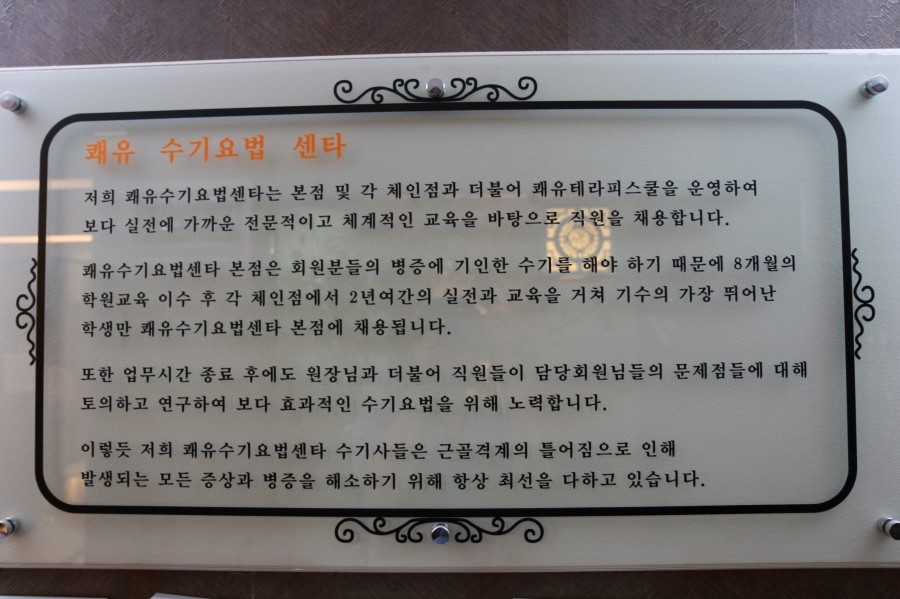 쾌유 수기요법 센타
저희 쾌유수기요법센타는 본점 및 각 체인점과 더불어 쾌유테라피스쿨을 운영하여
보다 실전에 가까운 전문적이고 체계적인 교육을 바탕으로 직원을 채용합니다.
쾌유수기요법센타 본점은 회원분들의 병증에 기인한 수기를 해야 하기 때문에 8개월의
학원교육 이수 후 각 체인점에서 2년여간의 실전과 교육을 거쳐 기수의 가장 뛰어난
학생만 쾌유수기요법센타 본점에 채용됩니다.
또한 업무시간 종료 후에도 원장님과 더불어 직원들이 담당회원님들의 문제점들에 대해
토의하고 연구하여 보다 효과적인 수기요법을 위해 노력합니다.
이렇듯 저희 쾌유수기요법센타 수기사들은 근골격계의 틀어짐으로 인해
발생되는 모든 증상과 병증을 해소하기 위해 항상 최선을 다하고 있습니다.